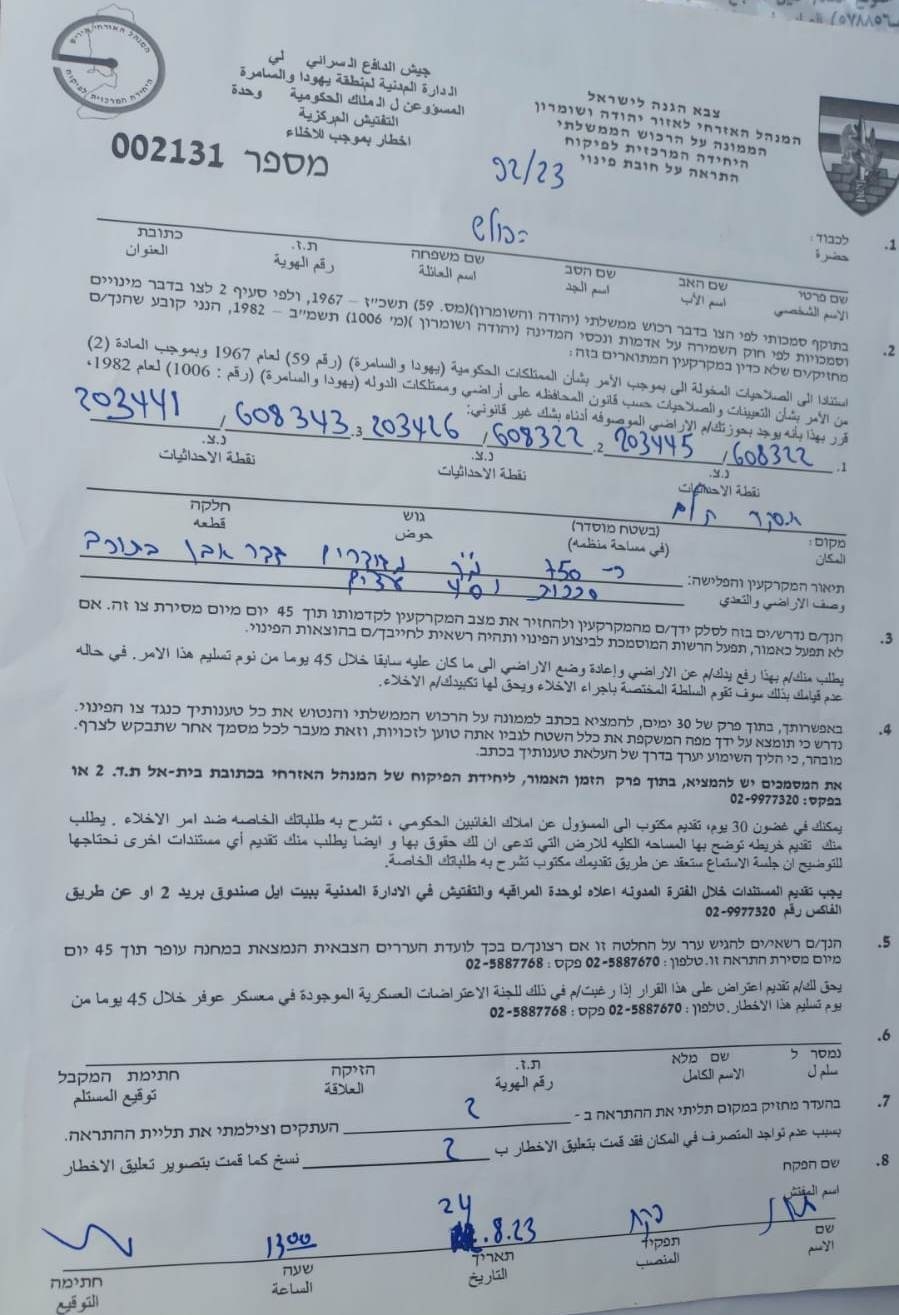 המנהל האזרחי איו״ש
היחידה המרכזית לפיקוח
جيش الدافع السرائي لي
الدارة المدنية لمنطقة يهودا والسامرة
المسؤوعن ل الملاك الحكومية وحدة
التفتيش المركزية
اخطار بموجب الاخلاء
צבא הגנה לישראל
המנהל האזרחי לאזור יהודה ושומרון
הממונה על הרכוש הממשלתי
היחידה המרכזית לפיקוח
התראה על חובת פינוי
מספר 002131
92/23
.1 לכבוד:
حضرة
שם פרטי שם האב שם הסב שם משפחה ת.ז. כתובת
الاسم الشخصي اسم الأب اسم الجد اسم العائلة رقم الهوية العنوان
.2 בתוקף סמכותי לפי הצו בדבר רכוש ממשלתי (יהודה והשומרון)(מס. 59) תשכ״ז – 1967, ולפי סעיף 2 לצו בדבר מינויים
וסמכויות לפי חוק השמירה על אדמות ונכסי המדינה (יהודה ושומרון )(מ׳ 1006) תשמ״ב – 1982, הנני קובע שהנך/ם
מחזיק/ים שלא כדין במקרקעין המתוארים בזה:
استنادا الى الصلاحيات المخولة الى بموجب الأمر بشأن الممتلكات الحكومية (يهودا والسامرة) (رقم 59) لعام 1967 وبموجب المادة (2)
من الأمر بشأن التعيينات والصلاحيات حسب قانون المحافظه على أراضي وممتلكات الدوله (يهودا والسامرة) (رقم : 1006) لعام 1982،
قرر بهذا بأنه يوجد بحوزتك/م الاراضي الموصوفه أدناه بشك غير قانوني:
.1 608322 / 203445 .2 608322 / 203426 .3 608343 / 203441
נ.צ. נ.צ. נ.צ.
نقطة الاحداثيات نقطة الاحداثيات نقطة الاحداثيات
מקום: (בשטח מוסדר) גוש חלקה
المكان (في مساحة منظمه) حوض قطعه
תיאור המקרקעין והפלישה: כ- 750 מ״ר
وصف الاراضي والتعدي
.3 הנך/ם נדרש/ים בזה לסלק ידך/ם מהמקרקעין ולהחזיר את מצב המקרקעין לקדמותו תוך 45 יום מיום מסירת צו זה. אם
לא תפעל כאמור, תפעל הרשות המוסמכת לביצוע הפינוי ותהיה רשאית לחייבך/ם בהוצאות הפינוי.
يطلب منك/م بهذا رفع يدك/م عن الاراضي وإعادة وضع الاراضي الى ما كان عليه سابقا خلال 45 يوما من نوم تسليم هذا الامر. في حاله
عدم قيامك بذلك سوف تقوم السلطة المختصة باجراء الاخلاء ويحق لها تكبيدك/م الاخلاء.
.4 באפשרותך, בתוך פרק של 30 ימים, להמציא בכתב לממונה על הרכוש הממשלתי והנטוש את כל טענותיך כנגד צו הפינוי.
נדרש כי תומצא על ידך מפה המשקפת את כלל השטח לגביו אתה טוען לזכויות, וזאת מעבר לכל מסמך אחר שתבקש לצרף.
מובהר, כי הליך השימוע יערך בדרך של העלאת טענותיך בכתב.
את המסמכים יש להמציא, בתוך פרק הזמן האמור, ליחידת הפיקוח של המנהל האזרחי בכתובת בית-אל ת.ד. 2 או
בפקס: 02-9977320
يمكنك في غضون 30 يوم، تقديم مكتوب الى المسؤول عن املاك الغائبين الحكومي ، تشرح به طلباتك الخاصه ضد امر الاخلاء . يطلب
منك تقديم خريطه توضح بها المساحه الكليه للارض التي تدعى ان لك حقوق بها و ايضا يطلب منك تقديم أي مستندات اخرى نحتاجها
للتوضيح ان جلسة الاستماع ستعقد عن طريق تقديمك مكتوب تشرح به طلباتك الخاصة.
يجب تقديم المستندات خلال الفترة المدونه اعلاه لوحدة المراقبه والتفتيش في الادارة المدنية ببيت ايل صندوق بريد 2 او عن طريق
الفاكس رقم 02-9977320
.5 הנך/ם רשאי/ים להגיש ערר על החלטה זו אם רצונך/ם בכך לועדת העררים הצבאית הנמצאת במחנה עופר תוך 45 יום
מיום מסירת התראה זו. טלפון: 02-5887670 פקס: 02-5887768
يحق لك/م تقديم اعتراض على هذا القرار إذا رغبت/م في ذلك للجنة الاعتراضات العسكرية الموجودة في معسكر عوفر خلال 45 يوما من
يوم تسليم هذا الاخطار. טלפון: 02-5887670 פקס: 02-5887768
.6
נמסר ל שם מלא ת.ז. הזיקה חתימת המקבל
سلم ل الاسم الكامل رقم الهوية العلاقة توقيع المستلم
.7 בהעדר מחזיק במקום תליתי את ההתראה ב - 2 העתקים וצילמתי את תליית ההתראה.
بسبب عدم تواجد المتصرف في المكان فقد قمت بتعليق الاخطار ب 2 نسخ كما قمت بتصوير تعليق الاخطار
.8 שם הפקח
اسم المفتش
פקח 24.8.23 13:00
שם תפקיד תאריך שעה חתימה
الاسم المنصب التاريخ الساعة التوقيع